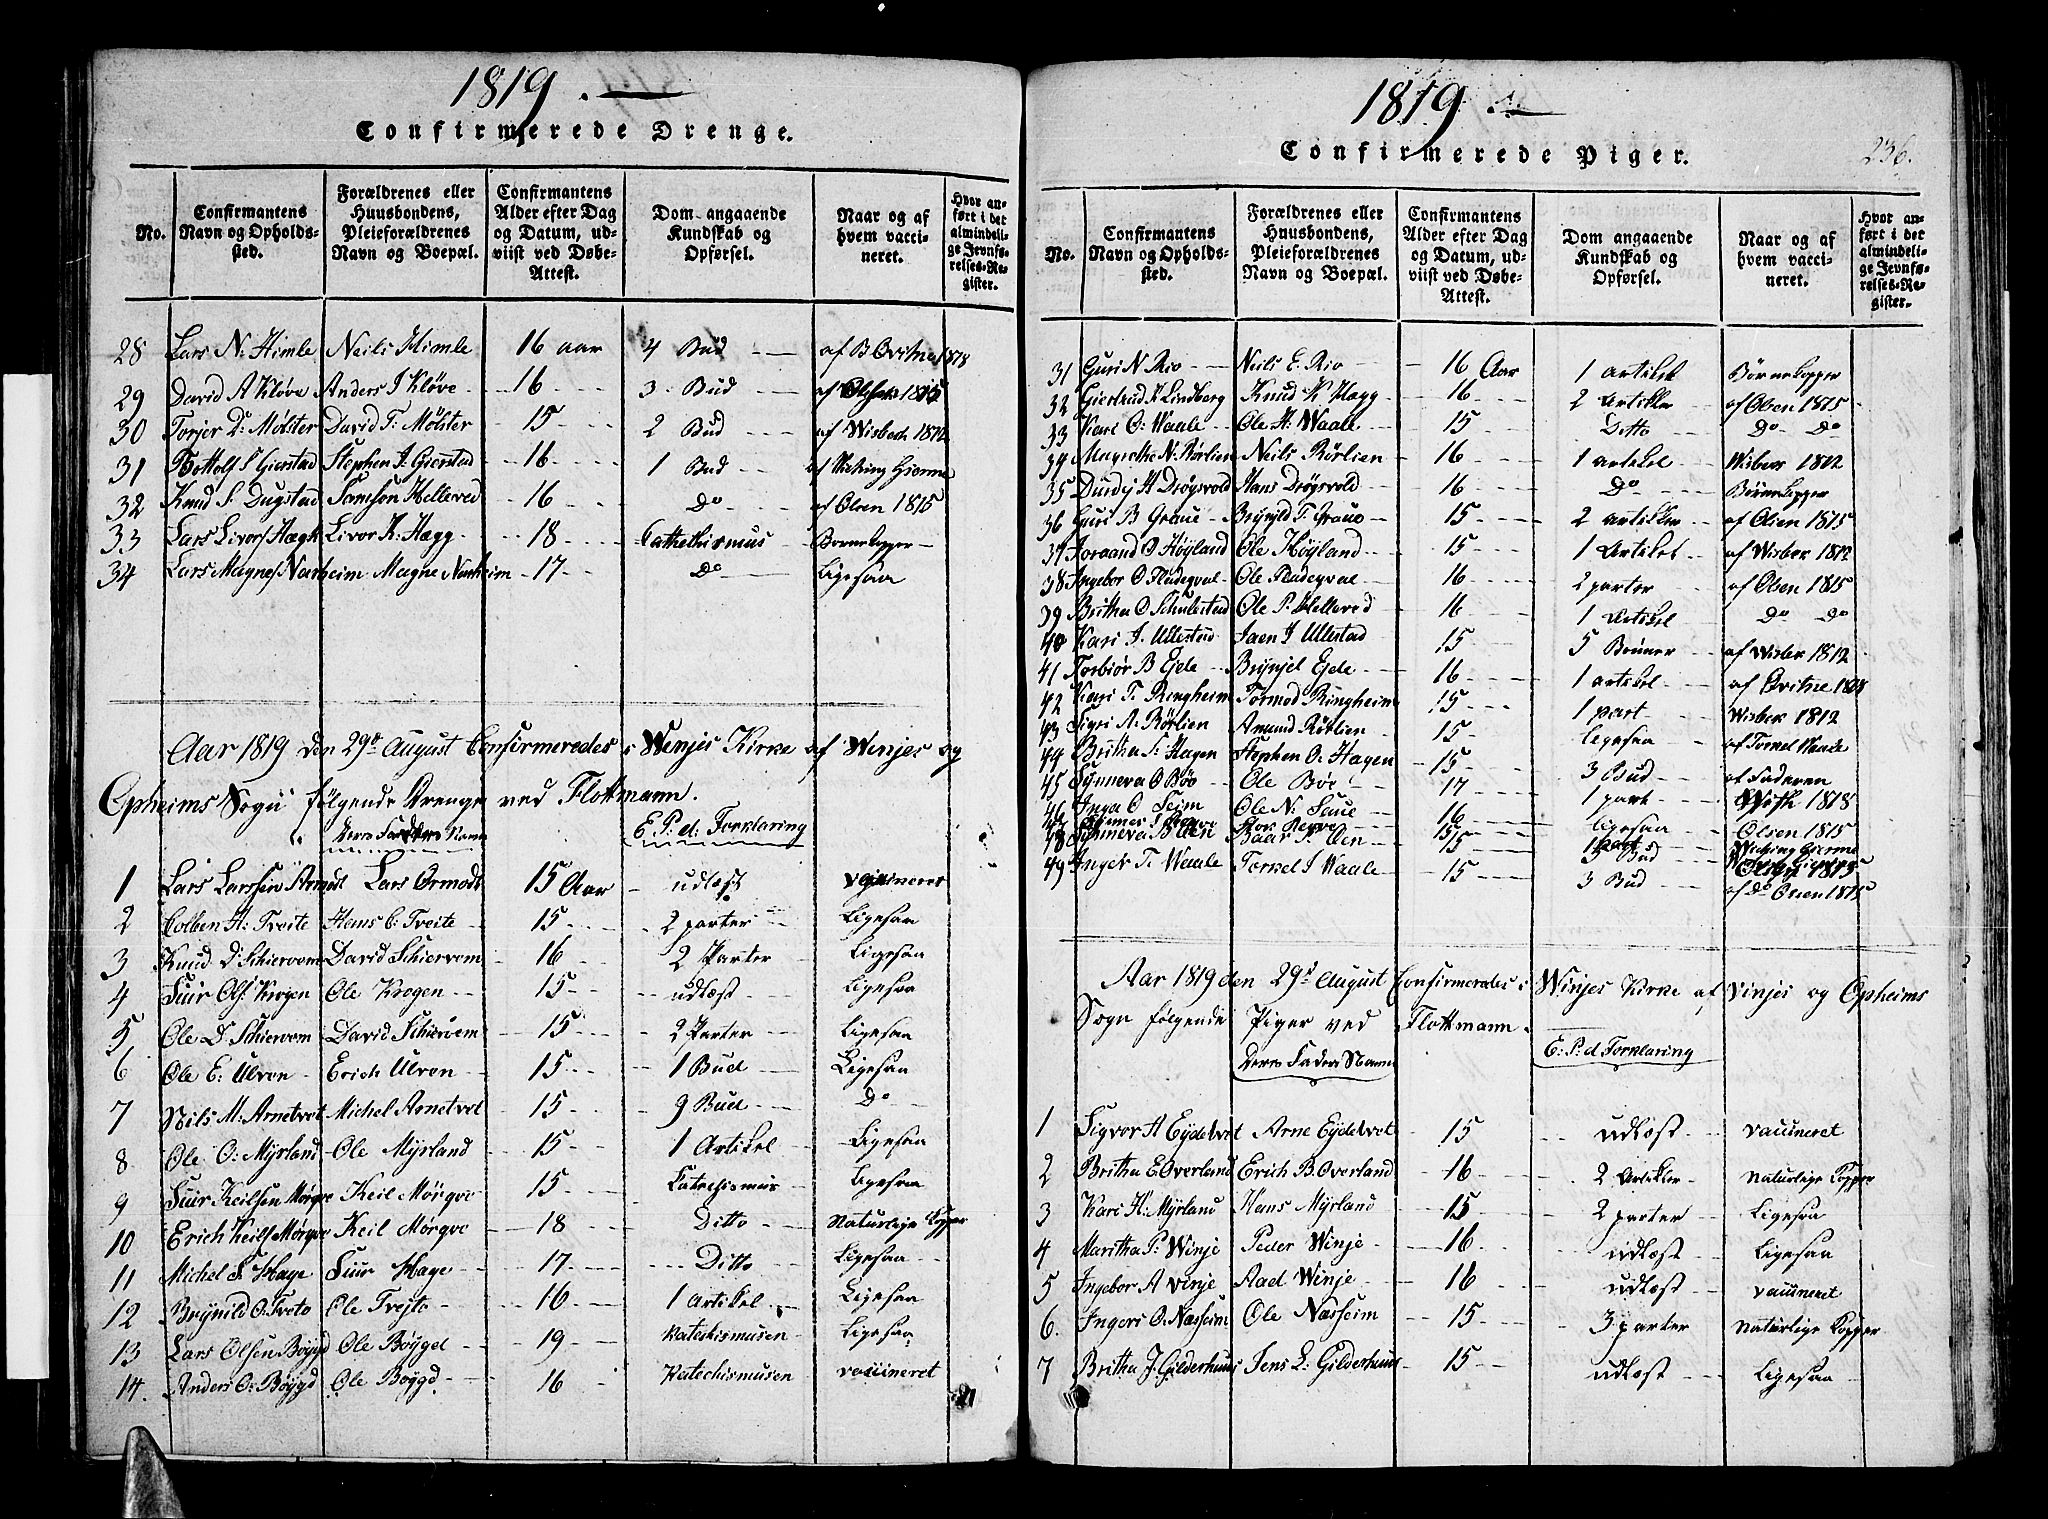 1819.
Confirmerede Drenge.
No.
Confirmantens Navn og Opholdssted.
Forældrenes eller Huusbondens, Pleieforældrenes Navn og Boepæl.
Confirmantens Alder efter Dag og Datum, udviist ved Døbe-Attest.
Dom angaaende Kundskab og Opførsel.
Naar og af hvem vaccineret.
Hvor anført i det almindelige Jevnførelses-Register.
28 Lars N: Himle Neils Himle 16 aar 4 Bud af B Qvitne 1818
29 David A Kløve Anders J Kløve 16 3 Bud af Olsen 1815
30 Torjer D: Mølster David T: Mølster 15 2 Bud af Wisbech 1812
31 Bottolf S Gierstad Stephen J. Gierstad 16 1 Bud af Wiching Hierme
32 Knud S. Dugstad Samson Helleved 16 Do af Olsen 1815
33 Lars Livors Hægk Livor K. Hægg 18 Cathethismus Børnekopper
34 Lars Magnes Narheim Magne Narheim 17 Do Ligesaa
Aar 1819 den 29de August Confirmeredes i Wenjes Kirke af Winjes og
Opheims Sogn følgende Drenge ved Flottmann.
Deres Faders Navn E. P. d: Forklaring
1 Lars Larssen Armodt Lars Ormodt 15 Aar udlæst vaccineret
2 Colben H: Tveite Hans C: Tveite 15 2 parter Ligesaa
3 Knud D Schiervem David Schiervem 16 2 Parter Ligesaa
4 Siur Ols: Krogen Ole Krogen 15 udlæst Ligesaa
5 Ole D. Schiervem David Schiervem 15 2 Parter Ligesaa
6 Ole E: Ulven Erich Ulven 15 1 Bud Ligesaa
7 Nils M: Arnetvet Michel Arnetvet 15 9 Bud Do
8 Ole O: Myrland Ole Myrland 15 1 Artikel Ligesaa
9 Siur Keilsen Mørqve Keil Mørqve 15 Catechismus Ligesaa
10 Erich Keils Mørqve Keil Mørqve 18 Ditto Naturlige Kopper
11 Michel S Haye Siur Haye 17 Ditto Ligesaa
12 Brynild O. Tveto Ole Tvejto 16 1 Artikel Ligesaa
13 Lars Olsen Bøygd Ole Bøyged 19 Katechismusen Ligesaa
14. Anders O: Bøygd Ole Bøygd 16 Katechismusen vaccineret
1819
Confirmerede Piger.
236.
No.
Confirmantens Navn og Opholdssted.
Forældrenes eller Huusbondens, Pleieforældrenes Navn og Boepæl.
Confirmantens Alder efter Dag og Datum, udviist ved Døbe-Attest.
Dom angaaende Kundskab og Opførsel.
Naar og af hvem vaccineret.
Hvor anført i det almindelige Jevnførelses-Register.
31 Guri N Rio Neils E. Rio 16 Aar 1 artikel Børnekopper
32 Giertrud K Lindberg Knud K Hægg 16 2 Artikler af Olsen 1815
33 Kari O: Waale Ole H: Waale 15 Ditto Do Do
34 Magrethe N. Rørlien Neils Rørlien 16 1 artikel Wisber 1812
35 Durdij H Drøgsvold Hans Drøgsvold 16 Do Børnekopper
36 Guri B Graue Brynild T. Graue 15 2 artikler af Olsen 1815
37 Joraand O Høyland Ole Høyland 15 1 Artikel af Wisber 1812
38 Ingebor O Fladeqval Ole Fladeqval 16 2 parter af Olsen 1815
39 Britha O Schulestad Ole P. Helleved 16 1 Artikel Do Do
40 Kari J. Ullestad Jaen J Ullestad 15 5 Bønner af Wisber 1812
41 Torbiør B Ejde Brynjel Ejde 16 1 artikel af Qvitne 1818
42 Kari T. Ringheim Tormod Ringheim 15 1 part Wisber 1812
43 Sigri A. Rørlien Amund Rørlien 15 ligesaa af Torkel Waale
44 Britha S: Hagen Stephen O: Hagen 15 3 Bud af Faderen
45 Synneva O Bøe Ole Bøe 17 1 part 1818
46 Inga O Seim Ole N: Saue 16 ligesaa Olsen 1815
48 Synneva B Øen Baar P. Øen 15 3 Bud
49 Inger T. Waale Torkel J Waale 15 3 Bud af Do Olsen 1815
Aar 1819 den 29de August Confirmeredes i Winjes Kirke af Vinjes og Opheims
Sogn følgende Piger ved Flottmann.
Deres Faders Navn E: P: d Forklaring
1 Sigvor A Eydetvet Arne Eydetvet 15 udlæst vaccineret
2 Britha E Overland Erich B. Overland 16 2 Artikler Naturlige Kopper
3 Kari H: Myrland Hans Myrland 15 2 parter Ligesaa
4 Maritha P: Winje Peder Winje 16 udlæst Ligesaa
5 Ingebor A Vinje Aad Winje 16 udlæst vaccineret
6. Ingeri O. Næsheim Ole Næsheim 15 3 parter Naturlige Kopper
7 Britha J. Gilderhuus Jens L: Gilderhuus 15 udlæst Ligesaa